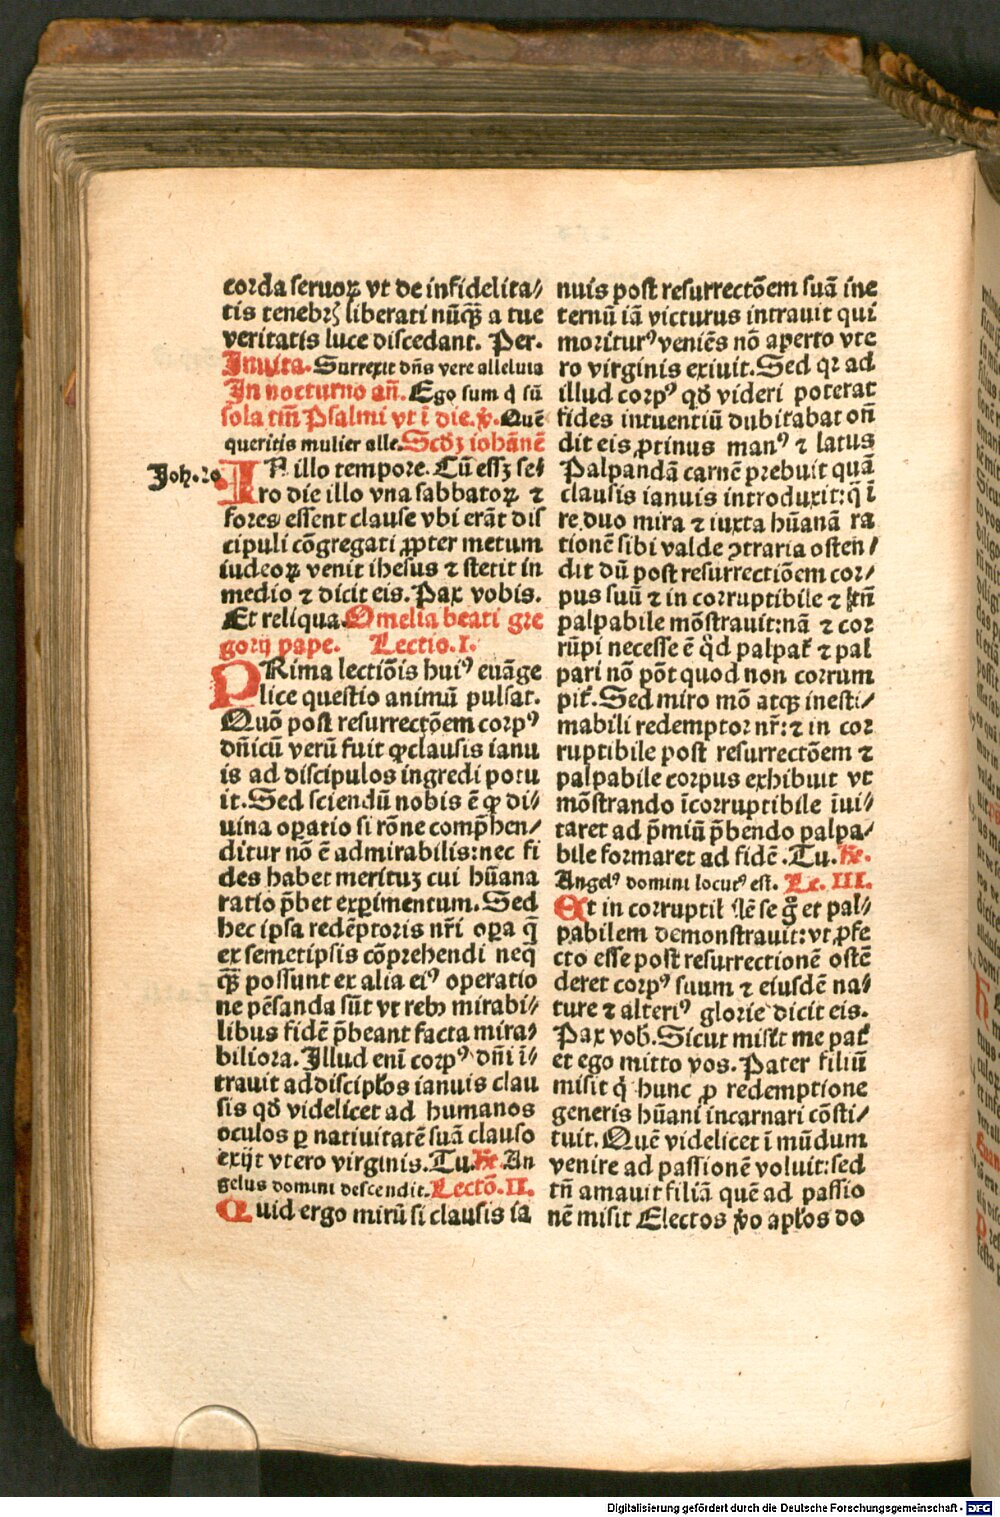 corda seruoꝝ vt de infidelita⸗
tis tenebrꝭ liberati nūꝙ̄ a tue
veritatis luce discedant. Per.
Inuita. Surrexit dn̄s vere alleluia
In nocturno an̄. Ego sum q̇ sū
sola tm̄ Psalmi vt ī die. v̄. Quē
queritis mulier alle. Scd́ꝫ iohānē
Joh. 20
IN illo tempore. Cū essꝫ se⸗
ro die illo vna sabbatoꝝ ⁊
fores essent clause vbi erāt dis
cipuli cōgregati ꝓpter metum
iudeoꝝ venit ihesus ⁊ stetit in
medio ⁊ dicit eis. Pax vobis.
Et reliqua. Omelia beati gre
gorij pape. Lectio. I.
PRima lectiōis huiꝰ euāge
lice questio animū pulsat.
Quō post resurrectōem corpꝰ
dn̄icū verū fuit ꝙ clausis ianu
is ad discipulos ingredi potu
it. Sed sciendū nobis ē ꝙ di⸗
uina oꝑatio si rōne comp̄hen⸗
ditur nō ē admirabilis: nec fi
des habet merituꝫ cui hūana
ratio p̄bet exꝑimentum. Sed
hec ipsa redēptoris nr̄i oꝑa q̄
ex semetipsis cōprehendi neq̄
ꝙ̄ possunt ex alia eiꝰ operatio
ne pēsanda sūt vt rebꝰ mirabi⸗
libus fidē p̄beant facta mira⸗
biliora. Illud enī corpꝰ dn̄i ī⸗
trauit ad discipl̓os ianuis clau
sis qd̓ videlicet ad humanos
oculos ꝑ natiuitatē suā clauso
exijt vtero virginis. Tu. R̄. An
gelus domini descendit. Lectō. II.
Quid ergo mirū si clausis ia
nuis post resurrectōem suā ine
ternū iā victurus intrauit qui
moriturꝰ veniēs nō aperto vte
ro virginis exiuit. Sed qꝛ ad
illud corpꝰ qd̓ videri poterat
fides intuentiū dubitabat on̄
dit eis ꝓtinus manꝰ ⁊ latus
Palpandā carnē prebuit quā
clausis ianuis introduxit: q̄ ī
re duo mira ⁊ iuxta hūanā ra
tionē sibi valde ꝯtraria osten⸗
dit dū post resurrectiōem cor⸗
pus suū ⁊ in corruptibile ⁊ tn̄
palpabile mōstrauit: nā ⁊ cor
rūpi necesse ē q̇d palpat᷑ ⁊ pal
pari nō pōt quod non corrum
pit᷑. Sed miro mō atqꝫ inesti⸗
mabili redemptor nr̄: ⁊ in cor
ruptibile post resurrectōem ⁊
palpabile corpus exhibuit vt
mōstrando īcorruptibile īui⸗
taret ad p̄miū p̄bendo palpa⸗
bile formaret ad fidē. Tu. R̄.
Angelꝰ domini locutꝰ est. Lc. III.
Et in corruptibilē se gͦ et pal⸗
pabilem demonstrauit: vt ꝓfe
cto esse post resurrectionē ostē
deret corpꝰ suum ⁊ eiusdē na⸗
ture ⁊ alteriꝰ glorie dicit eis.
Pax vob̓. Sicut misit me pat᷑
et ego mitto vos. Pater filiū
misit q̇ hunc ꝓ redemptione
generis hūani incarnari cōsti⸗
tuit. Quē videlicet ī mūdum
venire ad passionē voluit: sed
tn̄ amauit filiā quē ad passio
nē misit Electos v̄o apl̓os do
Digitalisierung gefördert durch die Deutsche Forschungsgemeinschaft - DFG